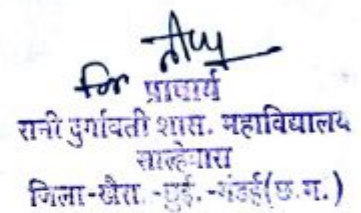 for
प्राचार्य
रानी दुर्गावती शास. महाविद्यालय
साल्हेवारा
जिला-खैरा.-छुई.-गंडई(छ.ग.)